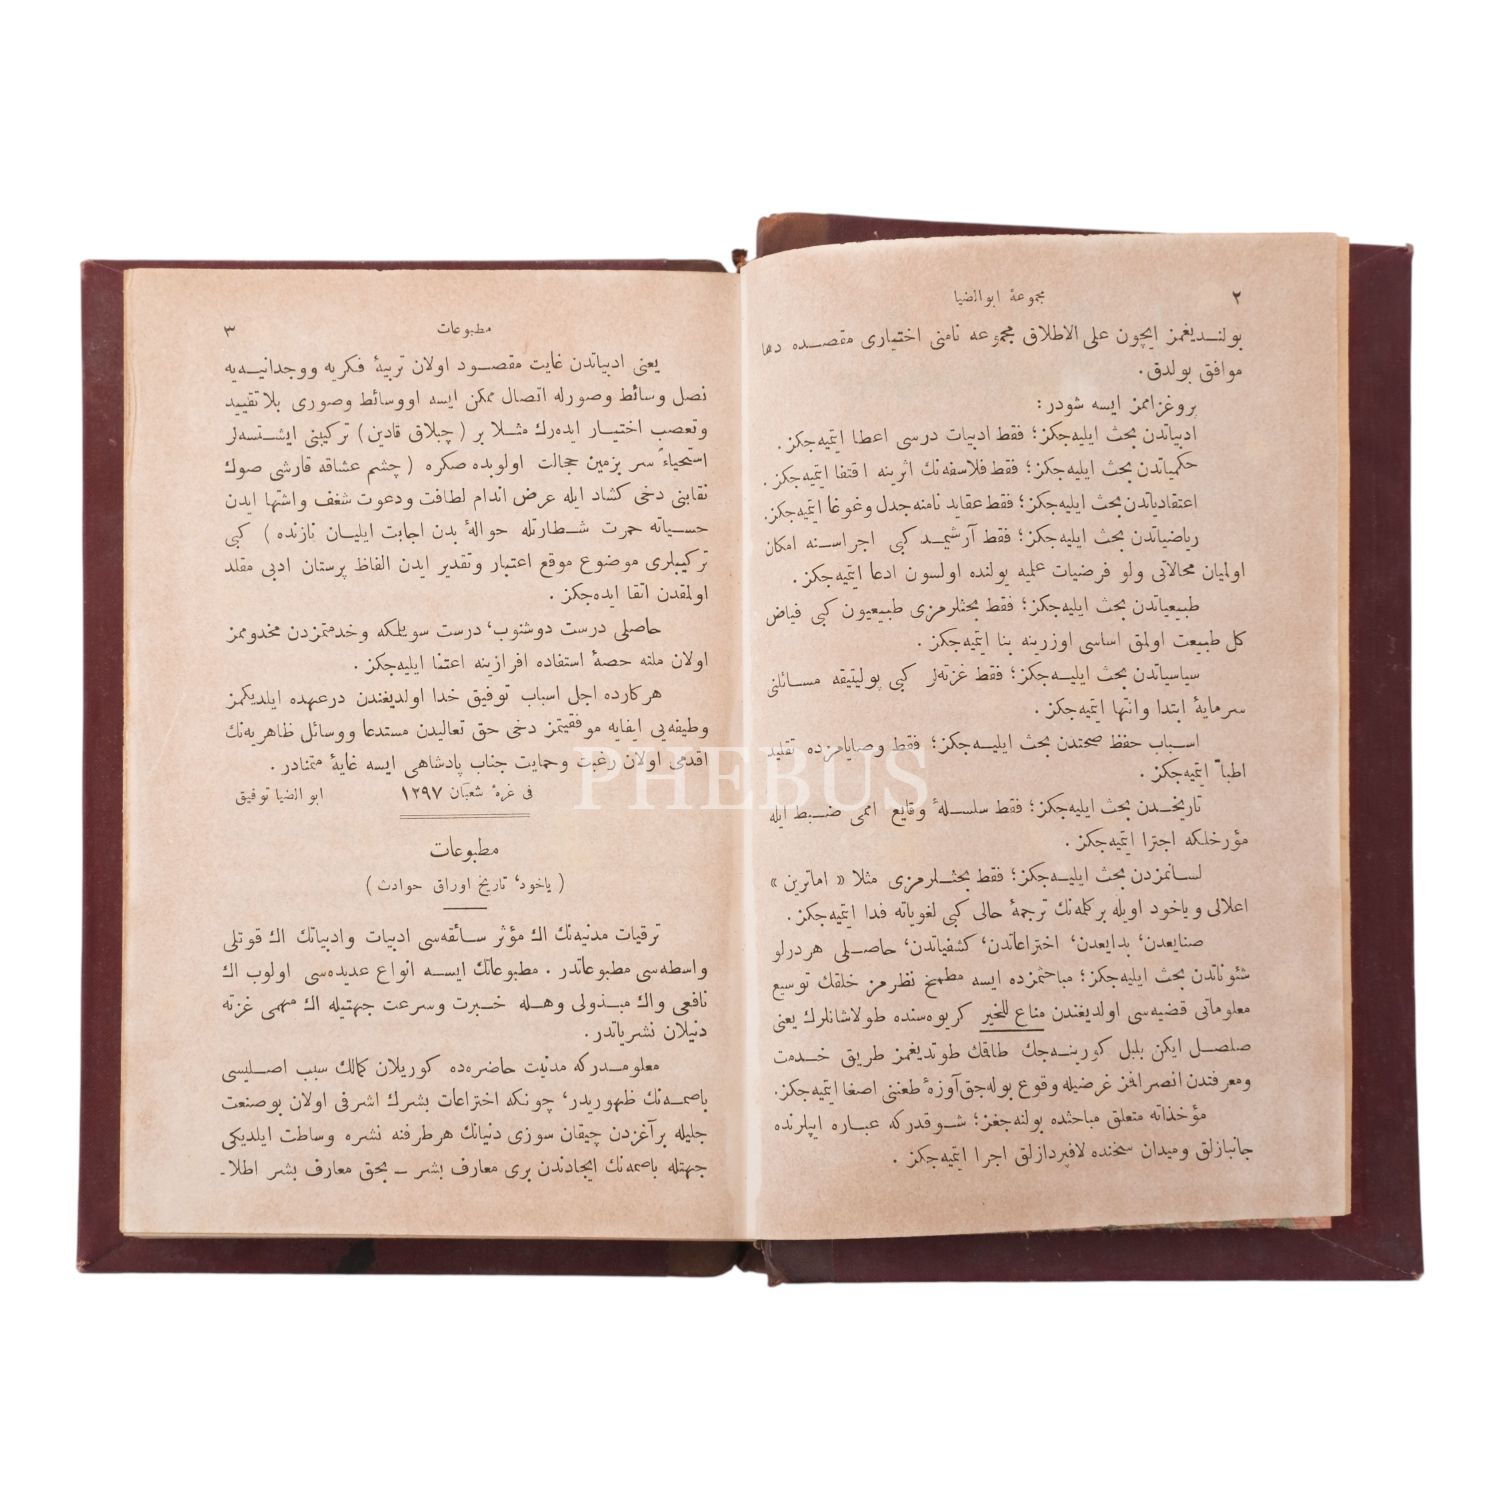 ٢
مجموعهٔ ابوالضيا
بولنديغمز ايچون على الاطلاق مجموعه نامنى اختيارى مقصده دها
موافق بولدق.
پروغرامز ايسه شودر:
ادبياتدن بحث ايليه‌جكز؛ فقط ادبيات درسى اعطا ايتميه‌جكز.
حكمياتدن بحث ايليه‌جكز؛ فقط فلاسفه‌نك اثرينه اقتفا ايتميه‌جكز.
اعتقادياتدن بحث ايليه‌جكز؛ فقط عقايد نامنه جدل وغوغا ايتميه‌جكز.
رياضياتدن بحث ايليه‌جكز؛ فقط آرشيمد كبى اجراسنه امكان
اولميان محالاتى ولو فرضيات علميه يولنده اولسون ادعا ايتميه‌جكز.
طبيعياتدن بحث ايليه‌جكز؛ فقط بحثلرمزى طبيعيون كبى فياض
كل طبيعت اولمق اساسى اوزرينه بنا ايتميه‌جكز.
سياسياتدن بحث ايليه‌جكز؛ فقط غزته‌لر كبى پوليتيقه مسائلنى
سرمايهٔ ابتدا وانتها ايتميه‌جكز.
اسباب حفظ صحتدن بحث ايليه‌جكز؛ فقط وصايامزده تقليد
اطبا ايتميه‌جكز.
تاريخدن بحث ايليه‌جكز؛ فقط سلسلهٔ وقايع اممى ضبط ايله
مؤرخلكه اجترا ايتميه‌جكز.
لسانمزدن بحث ايليه‌جكز؛ فقط بحثلرمزى مثلا «اماترين»
اعلالى وياخود اويله بركلمه‌نك ترجمهٔ حالى كبى لغوياته فدا ايتميه‌جكز.
صنايعدن، بدايعدن، اختراعاتدن، كشفياتدن، حاصلى هردرلو
شئوناتدن بحث ايليه‌جكز؛ مباحثمزده ايسه مطمح نظرمز خلقك توسيع
معلوماتى قضيه‌سى اولديغندن مناع للخير كريوه‌سنده طولاشانلرك يعنى
صلصل ايكن بلبل كورينه‌جك طاقك طوتديغمز طريق خدمت
ومعرفتدن انصرافمز غرضيله وقوع بوله‌جق آوازهٔ طعننى اصغا ايتميه‌جكز.
مؤخذاته متعلق مباحثده بولنه‌جغز؛ شوقدركه عباره ايپلرنده
جانبازلق وميدان سخنده لافپردازلق اجرا ايتميه‌جكز.
مطبوعات
٣
يعنى ادبياتدن غايت مقصود اولان تربيهٔ فكريه ووجدانيه‌يه
نصل وسائط وصورله اتصال ممكن ايسه اووسائط وصورى بلا تقييد
وتعصب اختيار ايده‌رك مثلا بر (چپلاق قادين) تركيبنى ايشتسه‌لر
استحياءً سر بزمين خجالت اولوبده صكره (چشم عشاقه قارشى صوك
نقابنى دخى كشاد ايله عرض اندام لطافت ودعوت شغف واشتها ايدن
حسياته حمرت شطارتله حوالهٔ بدن اجابت ايليان نازنده) كبى
تركيبلرى موضوع موقع اعتبار وتقدير ايدن الفاظ پرستان ادبى مقلد
اولمقدن اتقا ايده‌جكز.
حاصلى درست دوشنوب، درست سويلمكه وخدمتمزدن مخدوممز
اولان ملته حصهٔ استفاده افرازينه اعتنا ايليه‌جكز.
هركارده اجل اسباب توفيق خدا اولديغندن درعهده ايلديكمز
وظيفه‌يى ايفايه موفقيتمز دخى حق تعاليدن مستدعا ووسائل ظاهريه‌نك
اقدمى اولان رغبت وحمايت جناب پادشاهى ايسه غايهٔ متمنادر.
فى غرهٔ شعبان ١٢٩٧ ابوالضيا توفيق
مطبوعات
(ياخود، تاريخ اوراق حوادث)
ترقيات مدنيه‌نك اك مؤثر سائقه‌سى ادبيات وادبياتك اك قوتلى
واسطه‌سى مطبوعاتدر. مطبوعاتك ايسه انواع عديده‌سى اولوب اك
نافعى واك مبذولى وهله خبرت وسرعت جهتيله اك مهمى غزته
دنيلان نشرياتدر.
معلومدركه مدنيت حاضره‌ده كوريلان كمالك سبب اصليسى
باصمه‌نك ظهوريدر، چونكه اختراعات بشرك اشرفى اولان بو صنعت
جليله برآغزدن چيقان سوزى دنيانك هر طرفنه نشره وساطت ايلديكى
جهتله باصمه‌نك ايجادندن برى معارف بشر — بحق معارف بشر اطلا-
PHEBUS